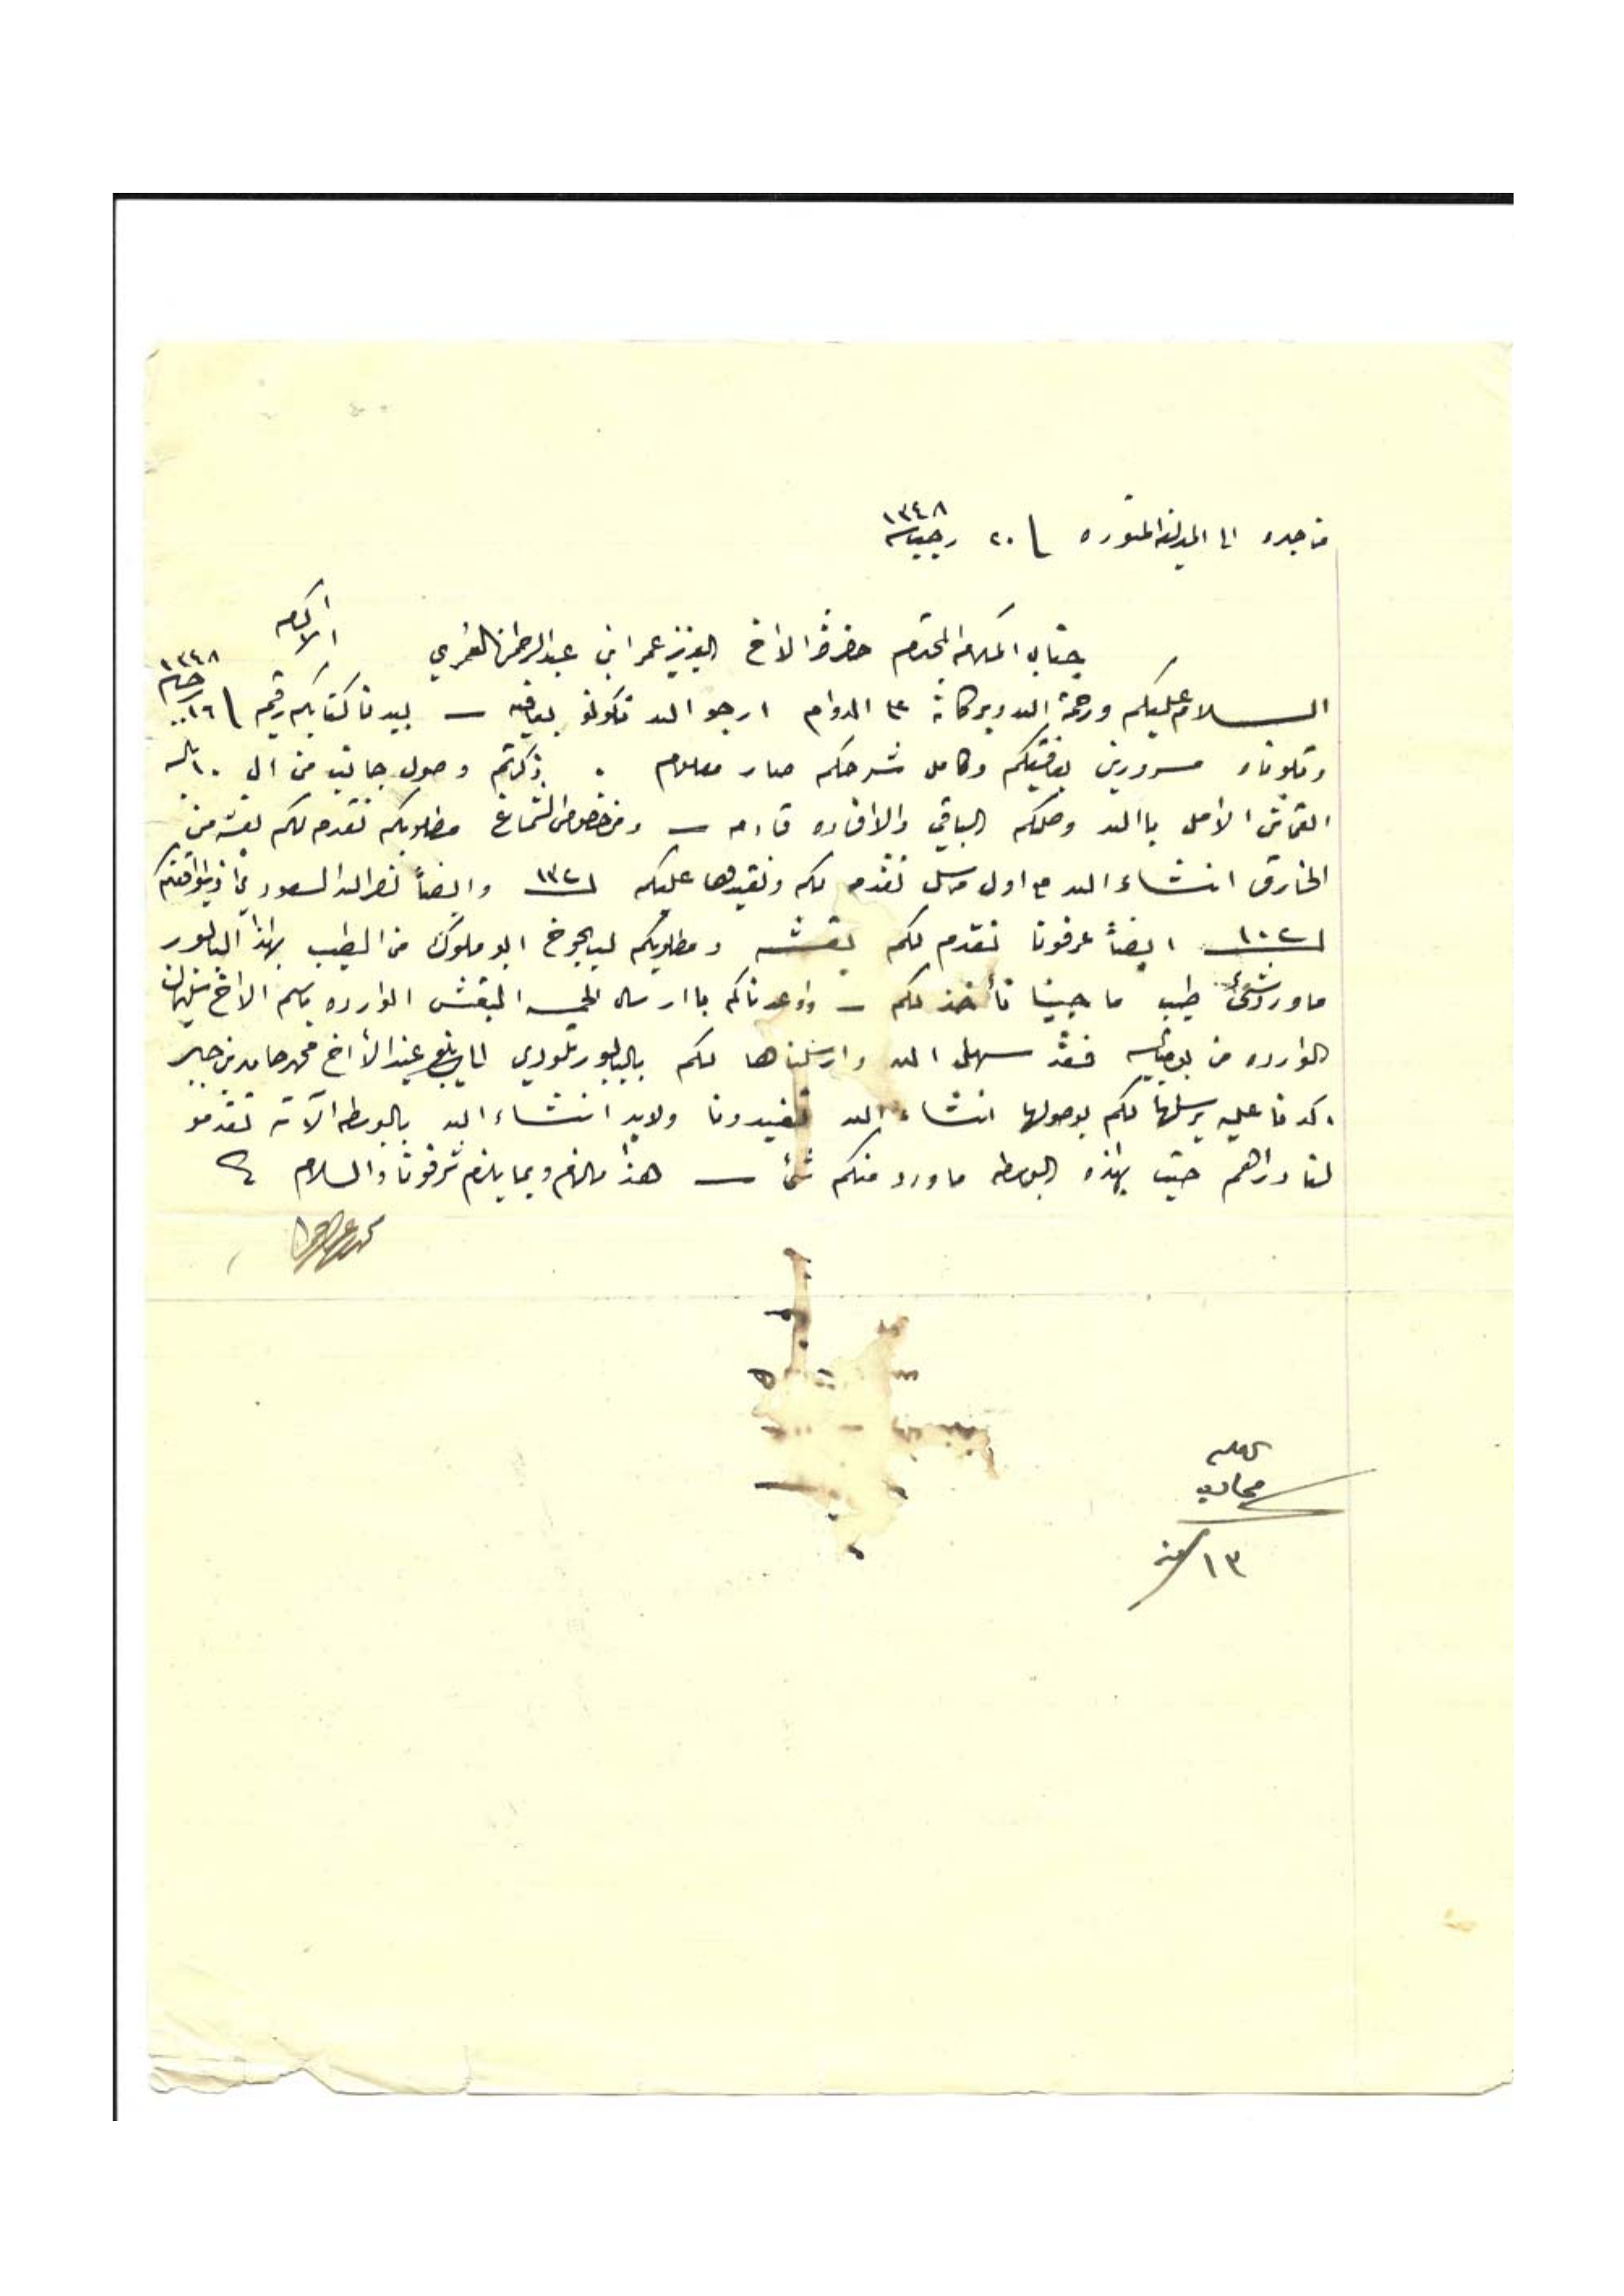 من جده الى المدينه المنوره ٢٠ رجب سنه ١٣٤٨
جناب المكرم المحترم حضرة الاخ العزيز عمر ابن عبدالرحمن العمري الاكرم
السلام عليكم ورحمة الله وبركاته على الدوام ارجو الله تكونو بعافيه — بيدنا كتابكم رقيم ١٦ رجب ١٣٤٨
وتلوناه مسرورين بعافيتكم وكامل شرحكم صار معلوم . ذكرتم وصول جانب من ال ١٠ باله
القماش الامل باالله وصلكم الباقي والافاده قادمه — ومن خصوص الشماغ مطلوبكم نقدم لكم بقشه من
الخارق انشاء الله مع اول مرسل نقدم لكم ونقيدها عليكم وايضاً نصرالله السعودي
ايضاً عرفونا نقدم لكم بقشه ومطلوبكم الجوخ ابو ملوك من الطيب بهذا البابور
ما ورد شئ طيب ما جينا نأخذ لكم — واوعدناكم باارسال البقش الوارده باسم الاخ سليمان
الوارده من بومباي فقد سهل الله وارسلناها لكم بالبابور تلودي لينبع عند الأخ محمد حامد بن جبر
اكدنا عليه يرسلها لكم بوصولها انشاء الله تفيدونا ولابد انشاء الله بالبوسطه الآتيه تقدمو
لنا دراهم حيث بهذه البوسطه ما ورد منكم شئ — هذا مالزم وبما يلزم شرفونا والسلام
محمد
١٣ منه